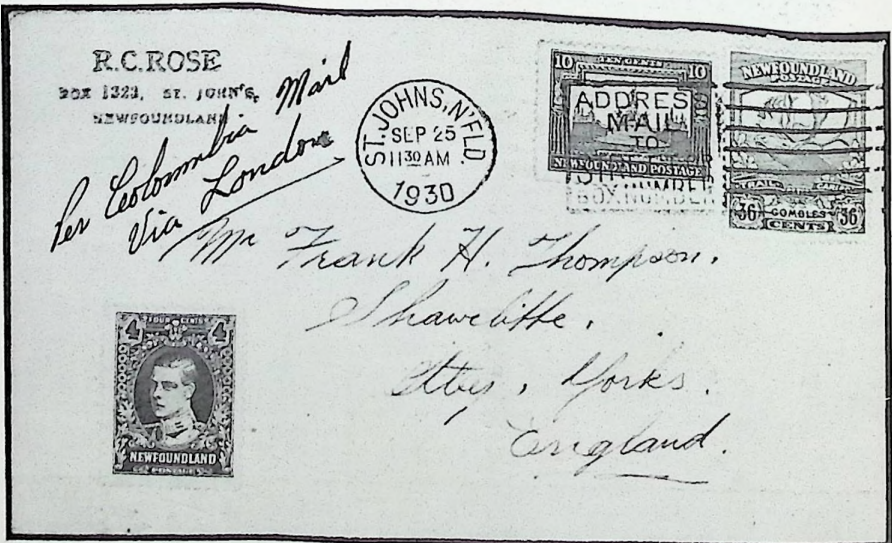 R.C.ROSE
BOX 1323, ST. JOHN'S,
NEWFOUNDLAND
Per Colombia Mail
Via London
ST. JOHNS, N'FLD.
SEP 25
11 30 AM
1930
TEN CENTS
10 10
NEWFOUNDLAND POSTAGE
ADDRESS
MAIL
TO
STREET
BOX NUMBER
NEWFOUNDLAND
POSTAGE
TRAIL
36 36
CENTS
Mr Frank H. Thompson,
Shawcliffe,
Otley, Yorks.
England.
FOUR CENTS
4 4
NEWFOUNDLAND
POSTAGE